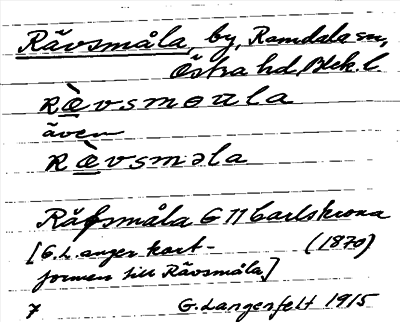 Rävsmåla, by, Ramdala sn,
Östra hd, Blek. l.
Ræ̀vsmɵɑla
även
Ræ̀vsməla
Räfsmåla G 11 Carlskrona
[G. L. anger kort- (1870)
formen till Rävsmåla]
7 G. Langenfelt 1915